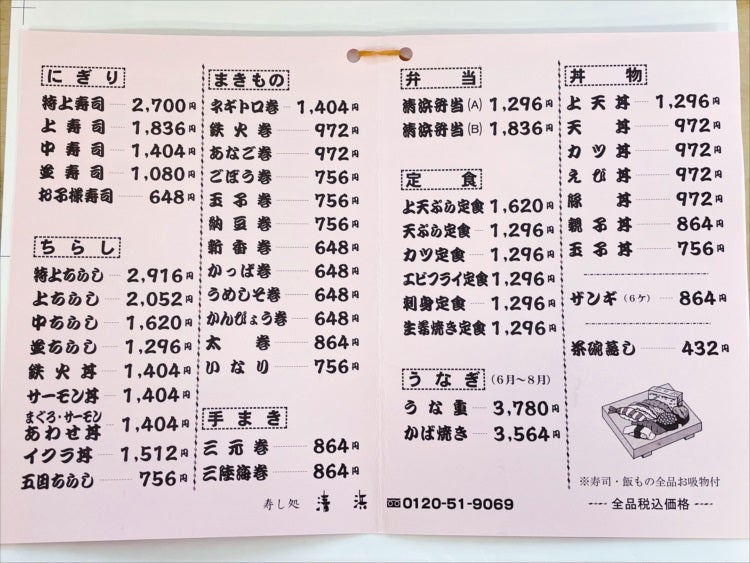 にぎり
特上寿司 2,700円
上寿司 1,836円
中寿司 1,404円
並寿司 1,080円
お子様寿司 648円
ちらし
特上ちらし 2,916円
上ちらし 2,052円
中ちらし 1,620円
並ちらし 1,296円
鉄火丼 1,404円
サーモン丼 1,404円
まぐろ・サーモン
あわせ丼 1,404円
イクラ丼 1,512円
五目ちらし 756円
まきもの
ネギトロ巻 1,404円
鉄火巻 972円
あなご巻 972円
ごぼう巻 756円
玉子巻 756円
納豆巻 756円
新香巻 648円
かっぱ巻 648円
うめしそ巻 648円
かんぴょう巻 648円
太巻 864円
いなり 756円
手まき
三元巻 864円
三陸海巻 864円
寿し処 清浜
弁当
清浜弁当(A) 1,296円
清浜弁当(B) 1,836円
定食
上天ぷら定食 1,620円
天ぷら定食 1,296円
カツ定食 1,296円
エビフライ定食 1,296円
刺身定食 1,296円
生姜焼き定食 1,296円
うなぎ (6月~8月)
うな重 3,780円
かば焼き 3,564円
0120-51-9069
丼物
上天丼 1,296円
天丼 972円
カツ丼 972円
えび丼 972円
豚丼 972円
親子丼 864円
玉子丼 756円
ザンギ(6ケ) 864円
茶碗蒸し 432円
※寿司・飯もの全品お吸物付
全品税込価格